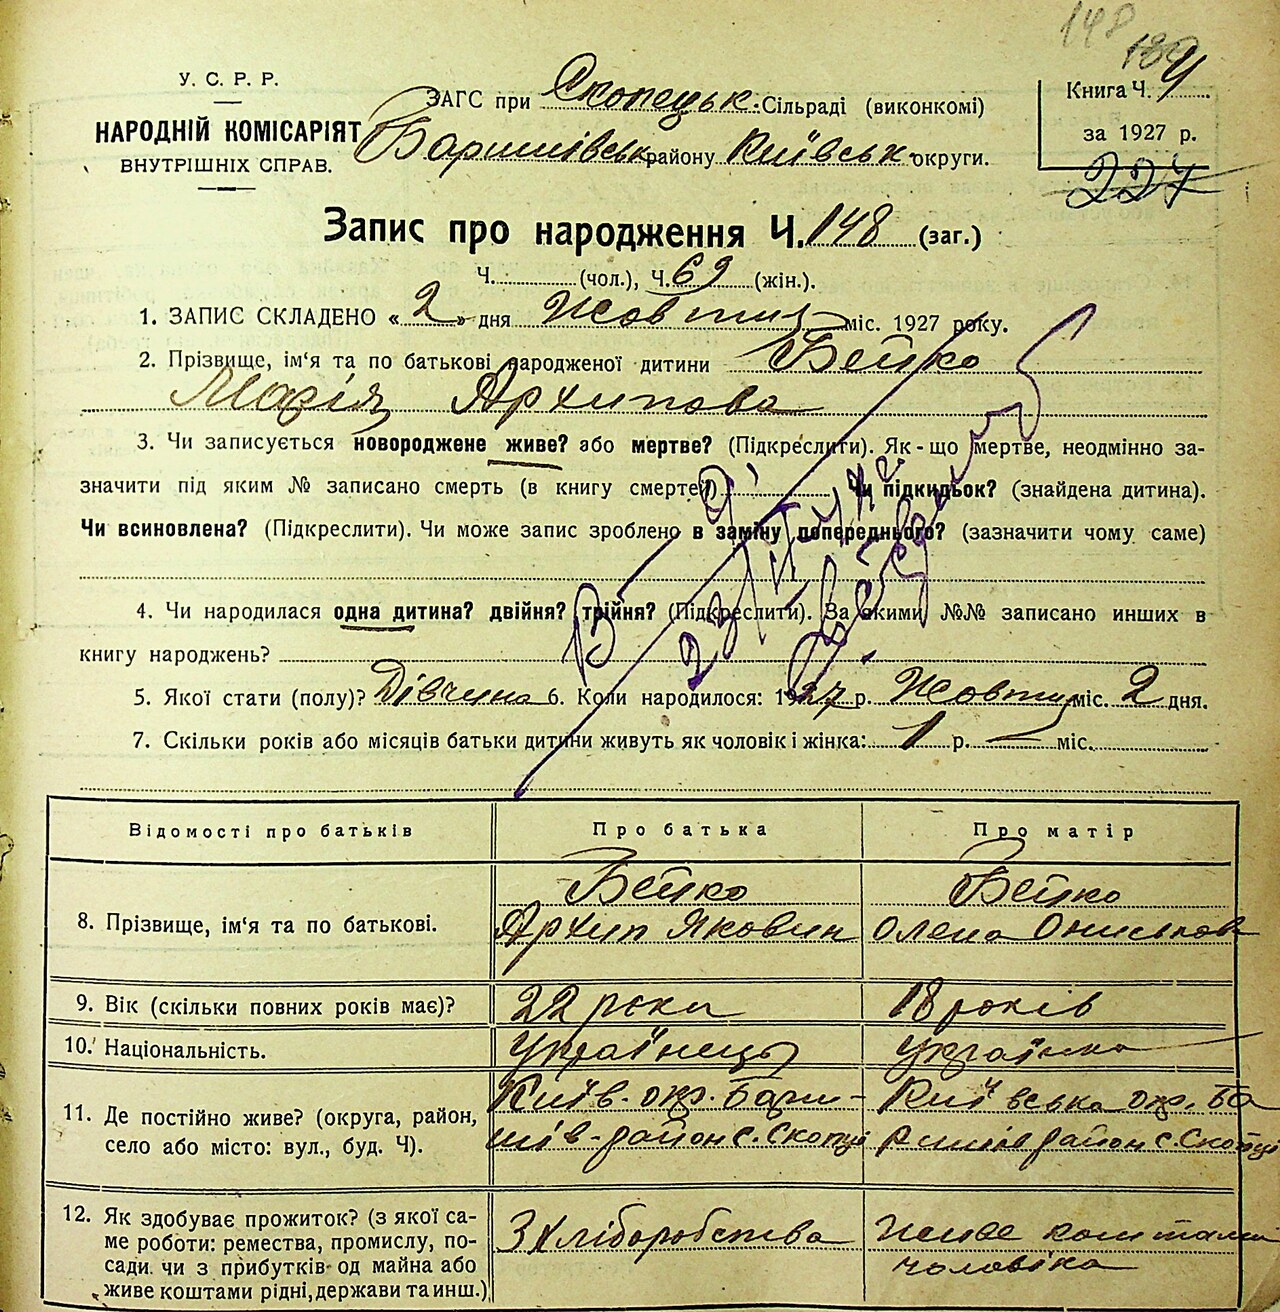 148
У. С. Р. Р.
НАРОДНІЙ КОМІСАРІЯТ
ВНУТРІШНІХ СПРАВ.
ЗАГС при Скопецьк. Сільраді (виконкомі)
Баришівськ району Київськ округи.
Книга Ч. 4
за 1927 р.
227
Запис про народження Ч. 148 (заг.)
Ч. (чол.), Ч. 69 (жін.).
1. ЗАПИС СКЛАДЕНО « 2 » дня Жовтня міс. 1927 року.
2. Прізвище, ім'я та по батькові народженої дитини Бейко
Марія Архипова
3. Чи записується новороджене живе? або мертве? (Підкреслити). Як-що мертве, неодмінно за-
значити під яким № записано смерть (в книгу смертей) Чи підкидьок? (знайдена дитина).
Чи всиновлена? (Підкреслити). Чи може запис зроблено в заміну попереднього? (зазначити чому саме)
4. Чи народилася одна дитина? двійня? трійня? (Підкреслити). За якими №№ записано инших в
книгу народжень?
5. Якої стати (полу)? Дівчина 6. Коли народилося: 1927 р. Жовтня міс. 2 дня.
7. Скільки років або місяців батьки дитини живуть як чоловік і жінка: 1 р. — міс.
Відомості про батьків Про батька Про матір
8. Прізвище, ім'я та по батькові.
Бейко
Архип Якович
Бейко
Олена Ониськова
9. Вік (скільки повних років має)? 22 роки 18 років
10. Національність. Українець Українка
11. Де постійно живе? (округа, район,
село або місто: вул., буд. Ч).
Київ. окр. Бари-
шів. район с. Скопці
Київська окр. Ба
ришів район с. Скопці
12. Як здобуває прожиток? (з якої са-
ме роботи: ремества, промислу, по-
сади чи з прибутків од майна або
живе коштами рідні, держави та инш.)
З хліборобства
Живе коштами
чоловіка